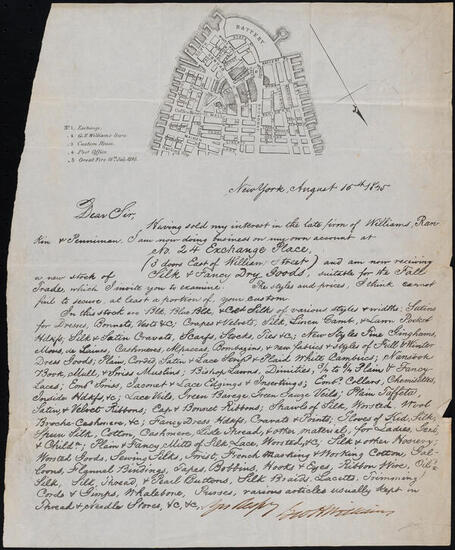 BATTERY
No. 1. Exchange.
2 G. H. Williams' Store.
3 Custom House.
4 Post Office.
5 Great Fire 19th July 1845.
New York, August 15th 1845
Dear Sir,
Having sold my interest in the late firm of Williams, Ran
kin & Penniman, I am now doing business on my own account at
No. 24 Exchange Place,
(3 doors East of William Street) and am now receiving
a new stock of Silk & Fancy Dry Goods, suitable for the Fall
Trade, which I invite you to examine. The styles and prices, I think cannot
fail to secure, at least a portion of your custom.
In this stock are Blk. Blue Blk. & Col. Silks of various styles & widths; Satins
for Dresses, Bonnets, Vests &c; Crapes & Velvets; Silk, Linen Camb. & Lawn Pocket
Hdkfs; Silk & Satin Cravats, Scarfs, Stocks, Ties &c; New Styles Fine Ginghams,
Mous. de Laines, Cashmeres, Merinos, Bombazines & new fabrics & styles of Fall & Winter
Dress Goods; Plain, Corded, Satin & Lace Strip'd & Plaid White Cambrics; Nansook
Book, Mull, & Swiss Muslins; Bishop Lawns, Dimities, Plain & Fancy
Laces; Emb'd Swiss, Jaconet & Lace Edgings & Insertings; Emb'd Collars, Chemisettes,
Inside Hdkfs &c; Lace Veils, Green Barege, Green Gauze Veils; Plain Taffeta
Satin & Velvet Ribbons; Cap & Bonnet Ribbons; Shawls of Silk, Worsted, Wool
Broche Cashmere, &c; Fancy Dress Hdkfs, Cravats & Points; Gloves of Kid, Silk,
Spun Silk, Cotton, Cashmere, Lisle Thread, & other material, for Ladies, Gents
& Child'n; Plain & Fancy Mitts of Silk Lace, Worsted, &c; Silk & other Hosiery;
Worsted Goods, Sewing Silks, Twist, French Marking & Working Cotton, Gal-
loons, Flannel Bindings, Tapes, Bobbins, Hooks & Eyes, Ribbon Wire, Oil'd
Silk, Silk, Thread, & Pearl Buttons, Silk Braids, Lacetts, Trimming
Cords & Gimps, Whalebone, Purses, various articles usually kept in
Thread & Needle Stores, &c, &c,
Geo H Williams